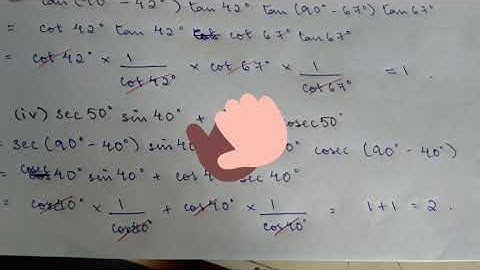 tan (90° - 42°) tan 42° tan (90° - 67°) tan 67°
= cot 42° tan 42° cot 67° tan 67°
= cot 42° × 1/cot 42° × cot 67° × 1/cot 67° = 1 .
(iv) sec 50° sin 40° + cosec 50°
= sec (90° - 40°) sin 40° cosec (90° - 40°)
= cosec 40° sin 40° + cos 40° sec 40°
= cosec 40° × 1/cosec 40° + cos 40° × 1/cos 40° = 1 + 1 = 2 .